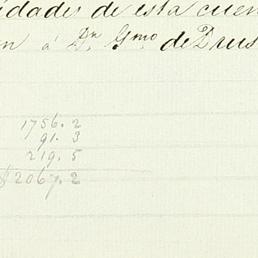 idades de esta cuen
n á Dn Gmo de Prus
1756.2
91.3
219.5
$2067.2